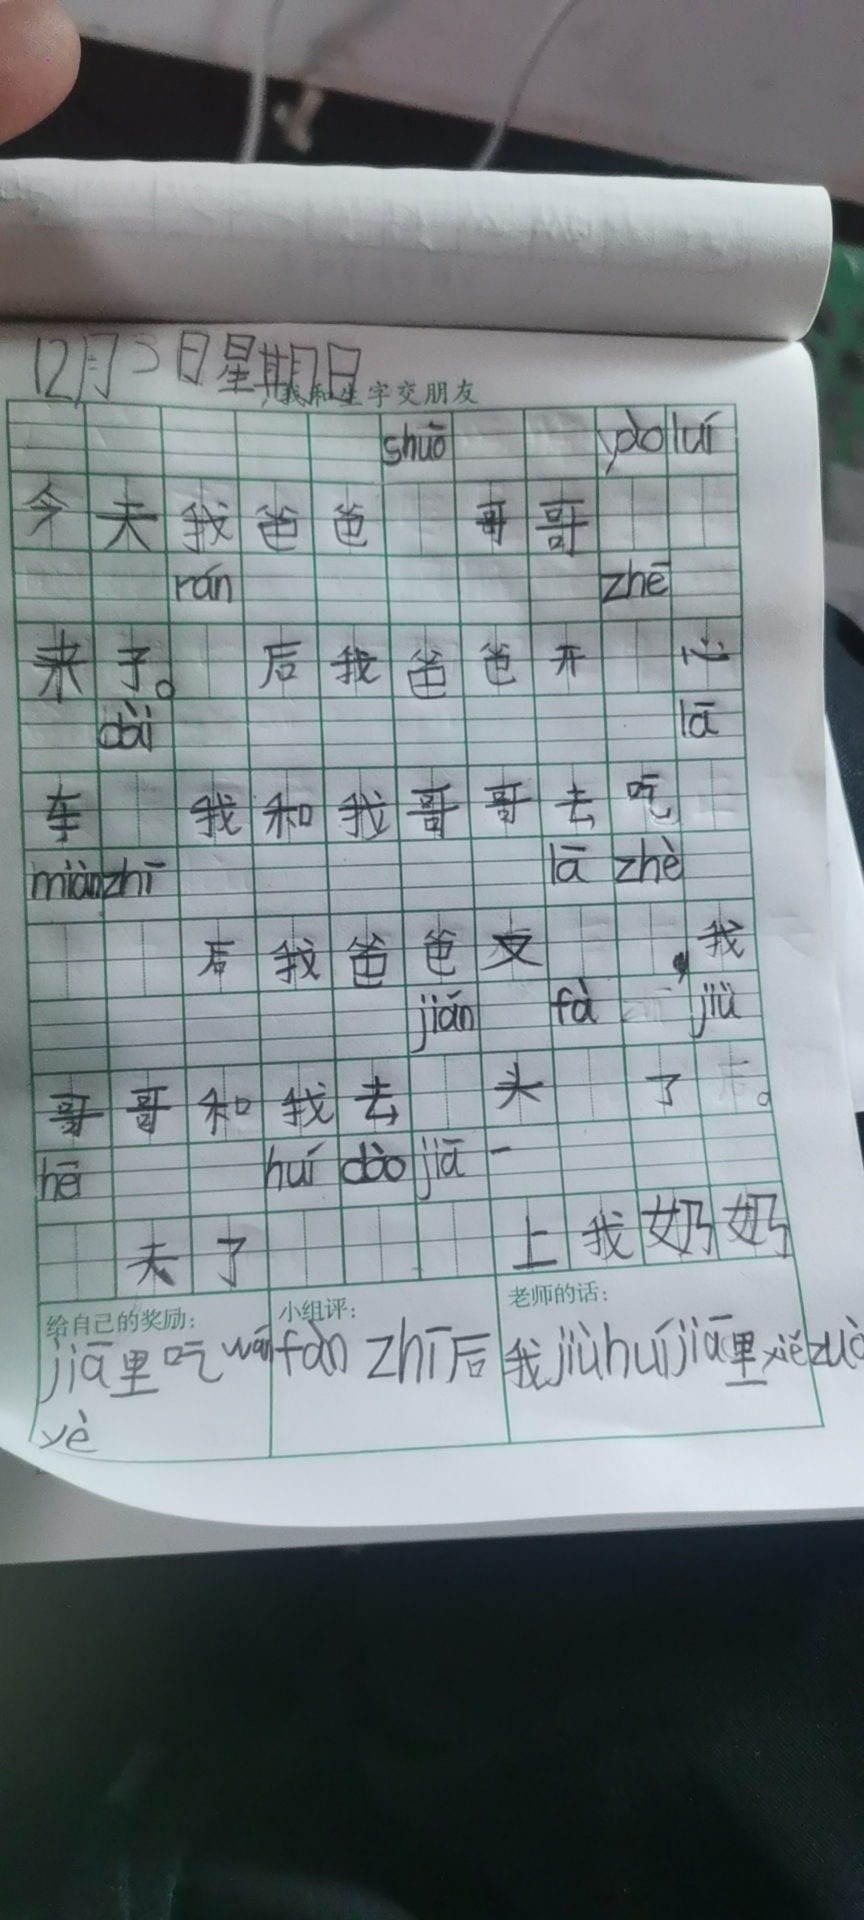 12月3日星期日
我和生字交朋友
shuō yào luí
今天我爸爸 哥哥
rán zhē
来了。 后我爸爸开 心
dài lā
车 我和我哥哥去吃
miàn zhī lā zhè
后我爸爸支 ,我
jián fà jiù
哥哥和我去 头 了。
hēi huí dào jiā 一
天了 上我奶奶
给自己的奖励: 小组评: 老师的话:
jiā里吃wǎn fàn zhī后 我jiù huí jiā里xiě zuò
yè